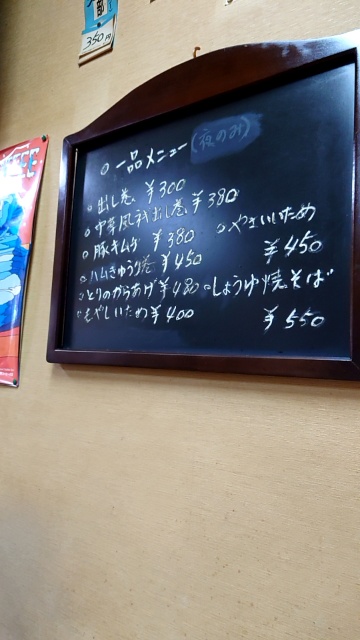 350円
○ 一品メニュー (夜のみ)
○ 出し巻 ¥300
○ 中華風 出し巻 ¥380
○ 豚キムチ ¥380
○ ハムきゅうり巻 ¥450
○ とりのからあげ ¥480
○ もやしいため ¥400
○ やさいいため
¥450
○ しょうゆ焼そば
¥550